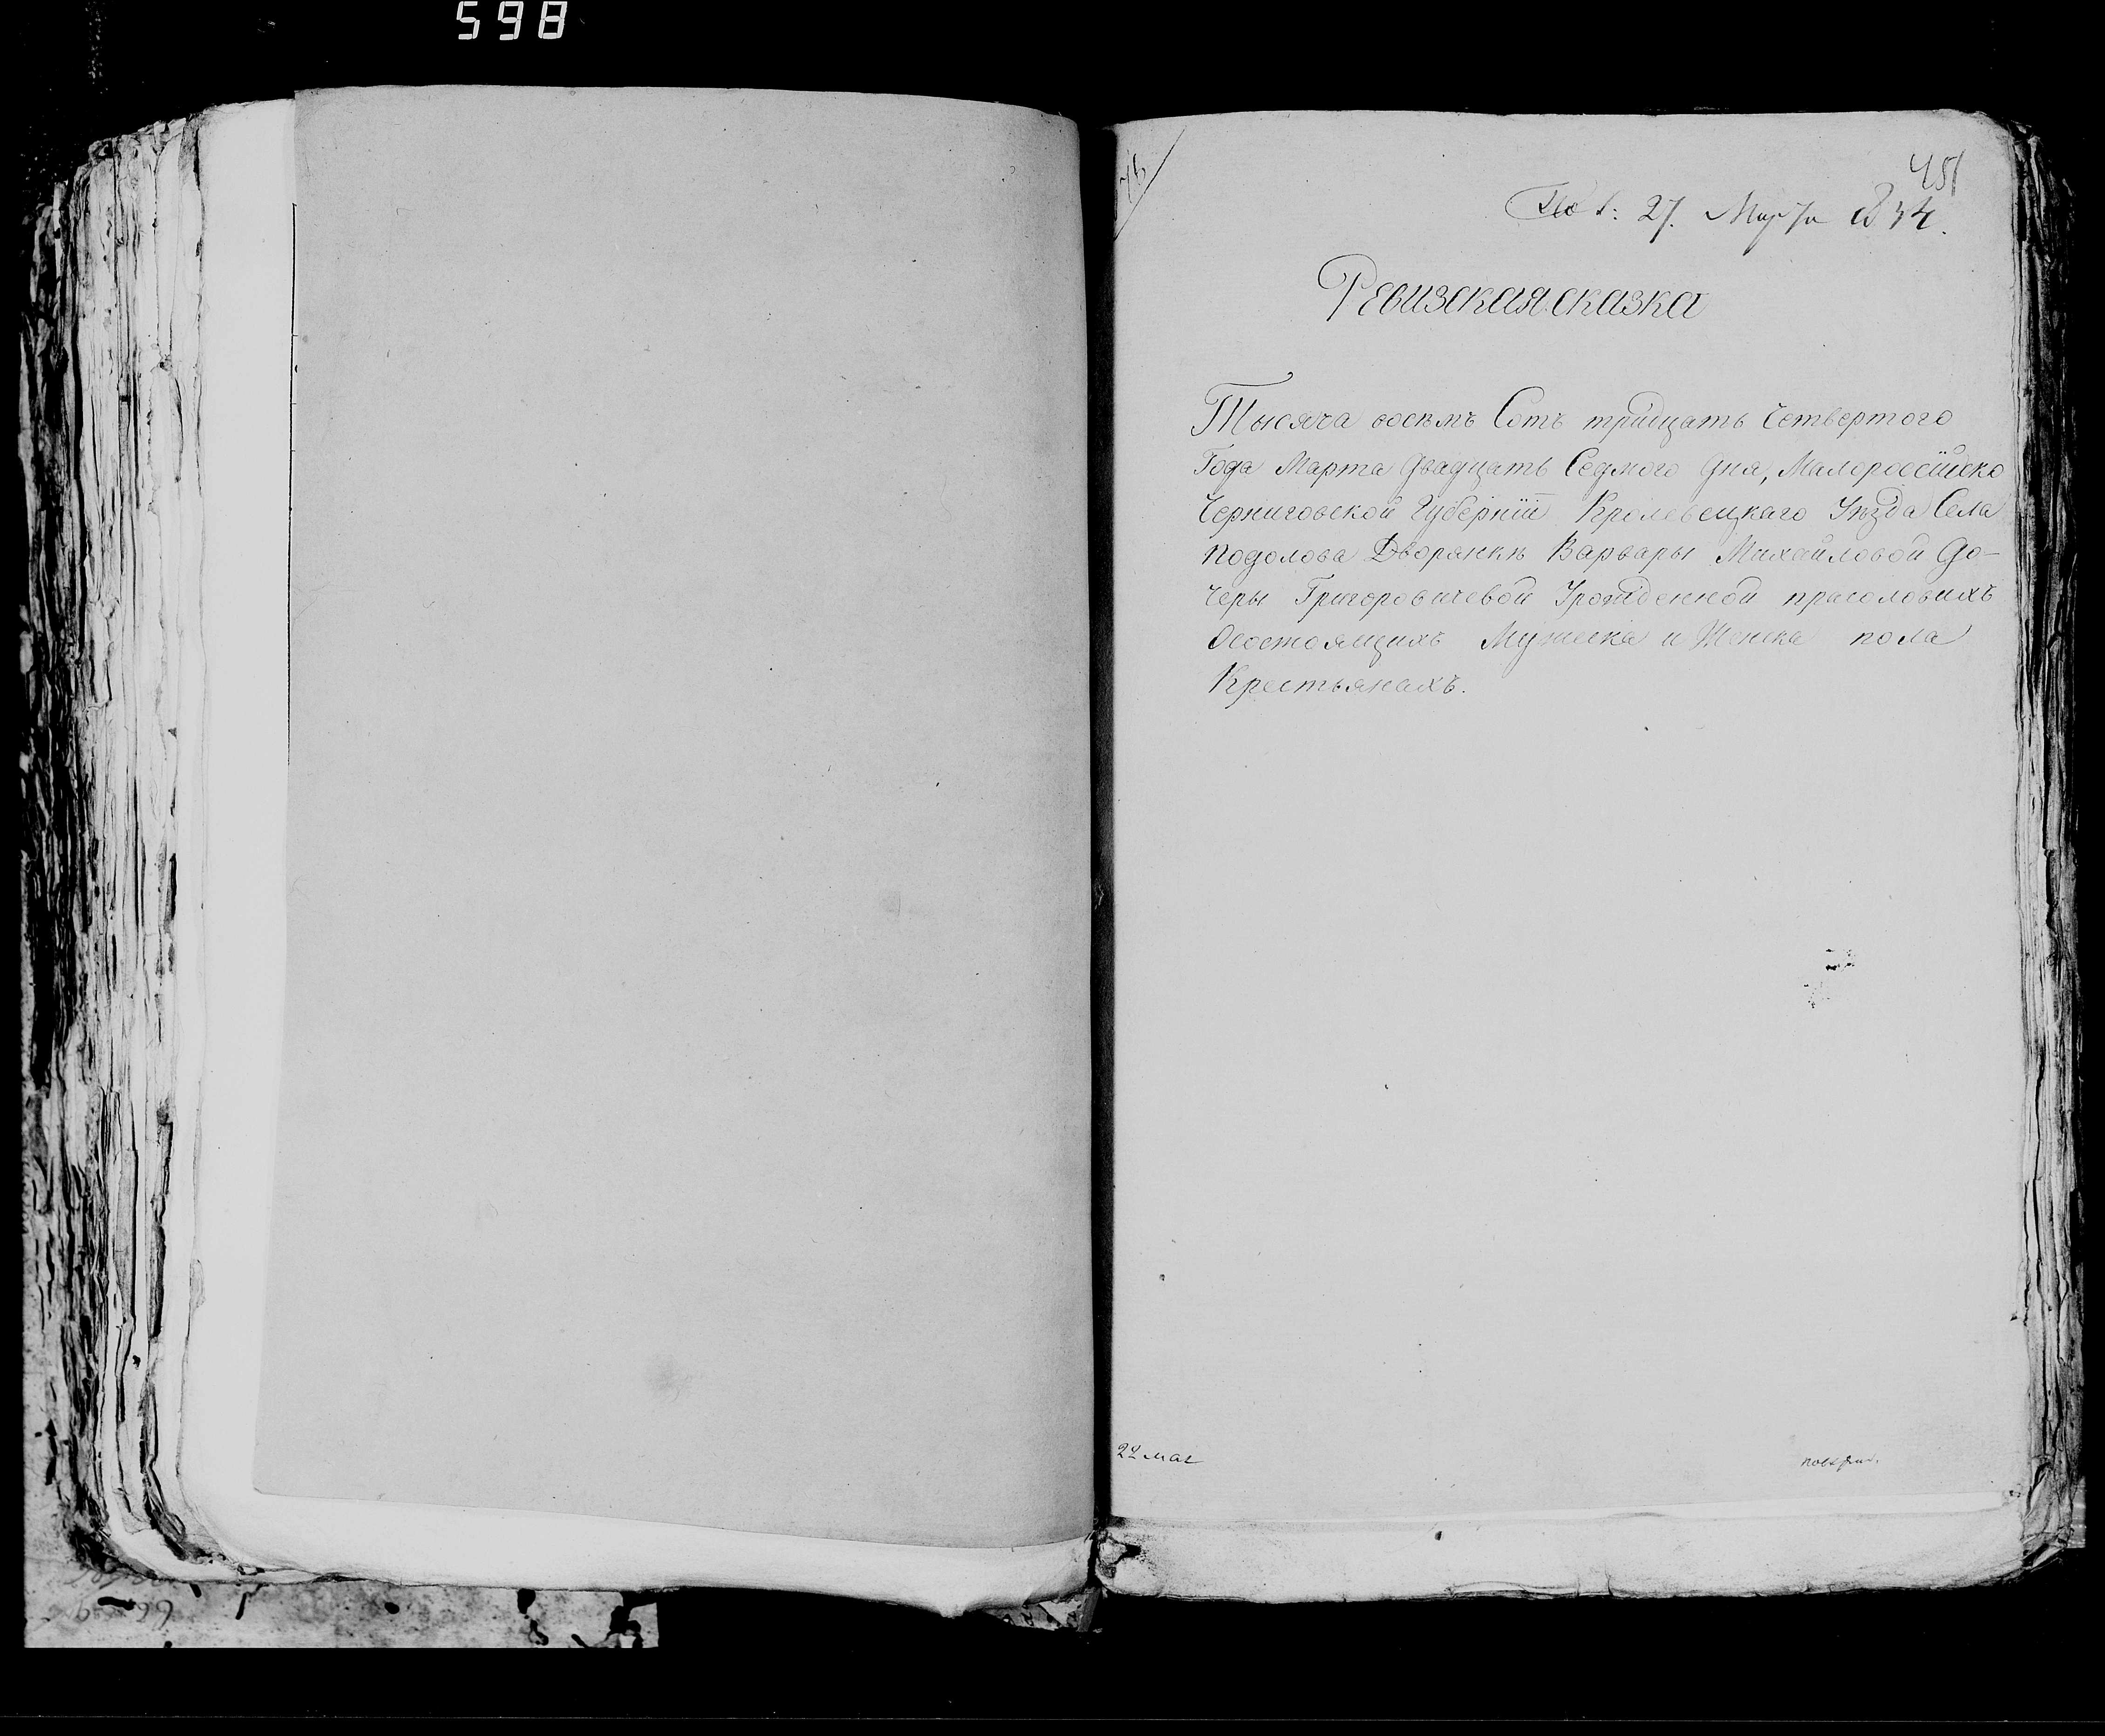 598
451
27. Марта 1834.
Ревизская сказка
Тысяча восемъ Сотъ тридцать Четвертого
Года Марта Двадцать Седмого Дня, Малороссійско
Черниговской Губерніи Кролевецкаго Уезда Села
Подолова Дворянки Варвары Михайловой До-
черы Григоровичевой Урожденной
Осостоящихъ Мужеска и Женска пола
Крестьянахъ.